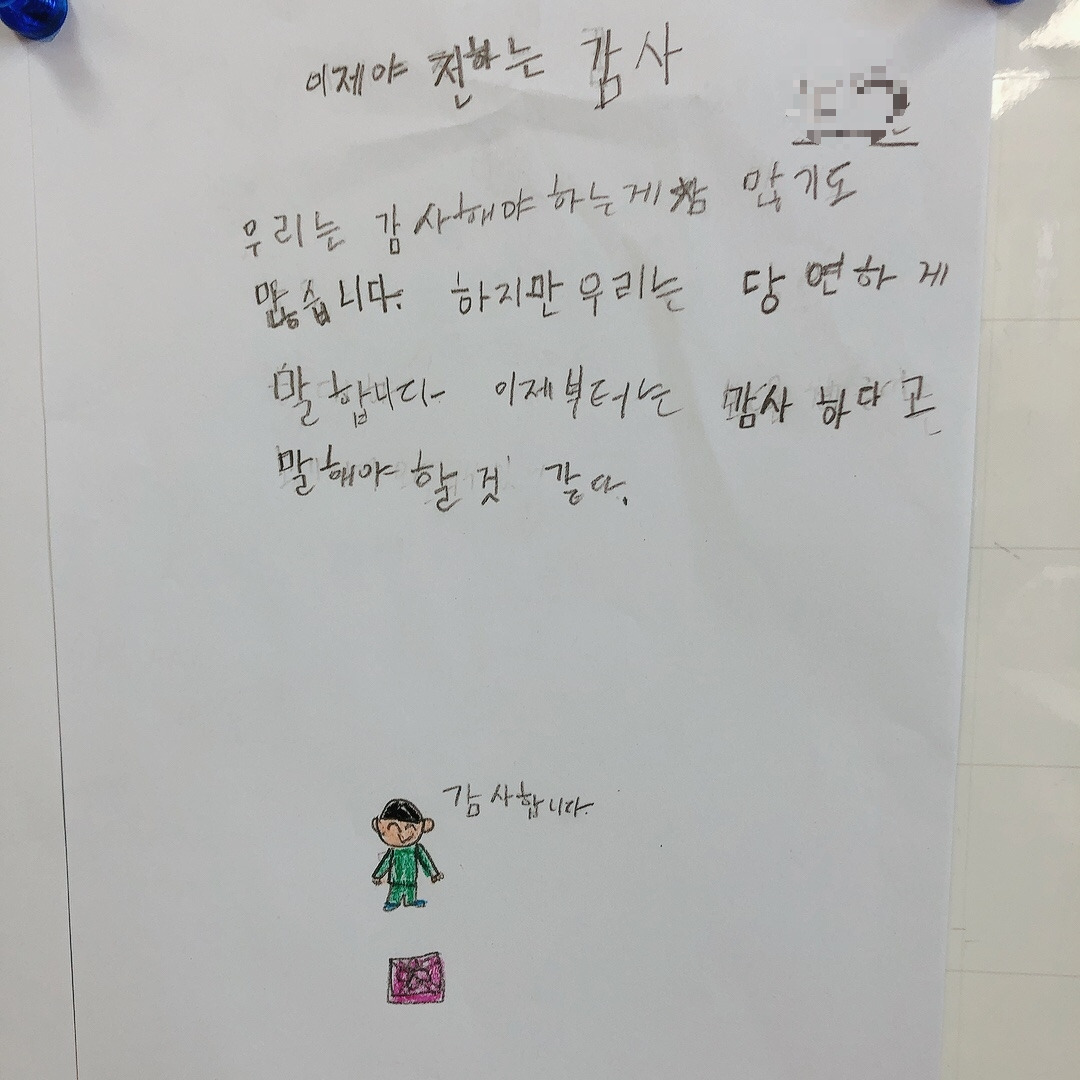 이제야 전하는 감사
우리는 감사해야 하는게 참 많기도
많습니다. 하지만 우리는 당연하게
말합니다. 이제부터는 감사 하다고
말해야 할 것 같다.
감사합니다.